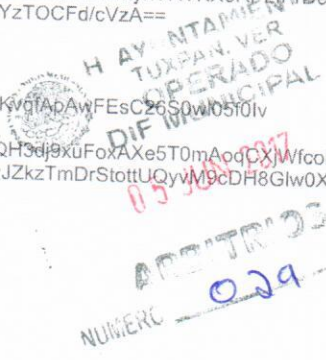 YzTOCFd/cVzA==
H AYUNTAMIENTO
TUXPAN, VER
OPERADO
DIF MUNICIPAL
KvgfApAwFEsC26S0wl05f0Iv
QH3dj9xuFoxAXe5T0mAoqCXjWfco
rJZkzTmDrStottUQyvM9cDH8Glw0X
05 JUN 2017
ARBITRIOS
NUMERO 029